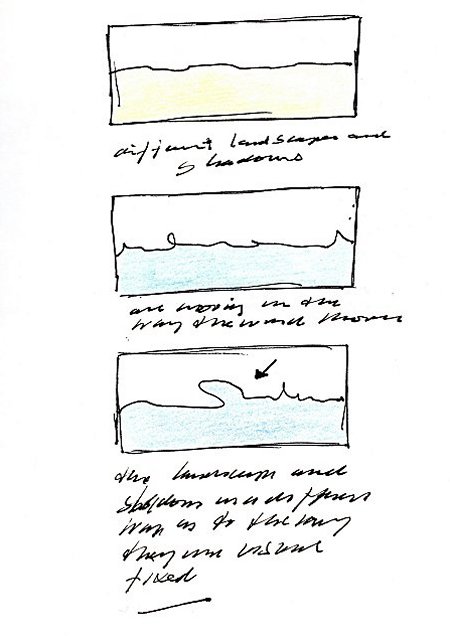 different landscapes and
shadows
are moving in the
way the wind moves
the landscape and
shadows in a different
way as to the way
they are
fixed